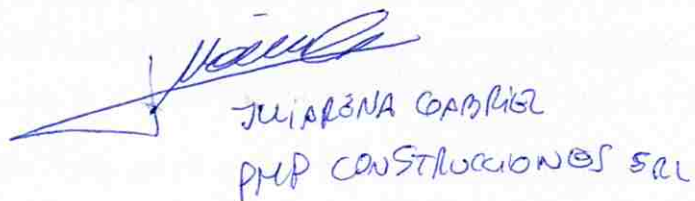 JULIARENA GABRIEL
PMP CONSTRUCCIONES SRL